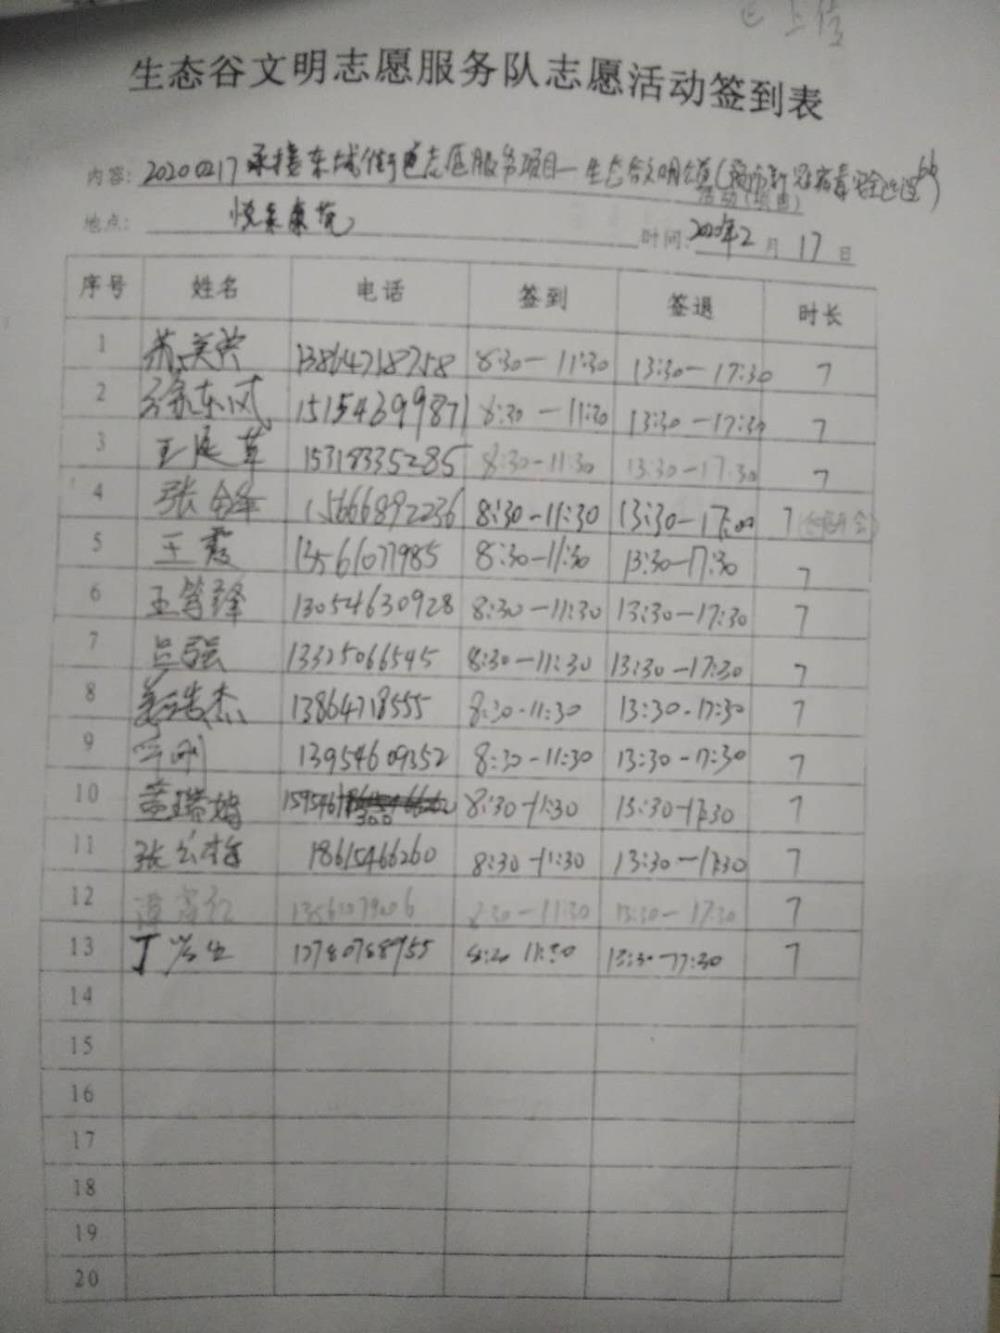 已上传
生态谷文明志愿服务队志愿活动签到表
内容: 20200217 承接东城街道志愿服务项目—生态谷文明
活动(项目)
地点: 悦来康苑
时间: 2020年2月17日
序号 姓名 电话 签到 签退 时长
1 美荣 13864718758 8:30—11:30 13:30—17:30 7
2 徐东风 15154699871 8:30—11:30 13:30—17:30 7
3 王 15318335285 8:30-11:30 13:30-17:30 7
4 张 15666892236 8:30-11:30 13:30-17:00 7
5 王霞 13561077985 8:30-11:30 13:30-17:30 7
6 王 13054630928 8:30-11:30 13:30-17:30 7
7 吕强 13325066545 8:30-11:30 13:30-17:30 7
8 姜浩杰 13864718555 8:30-11:30 13:30-17:30 7
9 13954609352 8:30-11:30 13:30-17:30 7
10 8:30-11:30 13:30-17:30 7
11 张 18615466260 8:30-11:30 13:30-17:30 7
12 8:30-11:30 13:30-17:30 7
13 丁 8:30 11:30 13:30-17:30 7
14
15
16
17
18
19
20